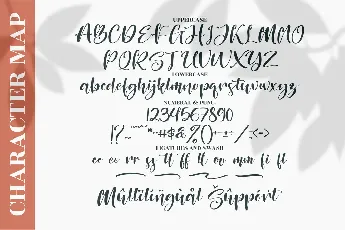 CHARACTER MAP
UPPERCASE
ABCDEFGHIJKLMNO
PQRSTUVWXYZ
LOWERCASE
abcdefghijklmnopqrstuvwxyz
NUMERAL & PUNC
1234567890
LIGATURES AND SWASH
Multilingual Support